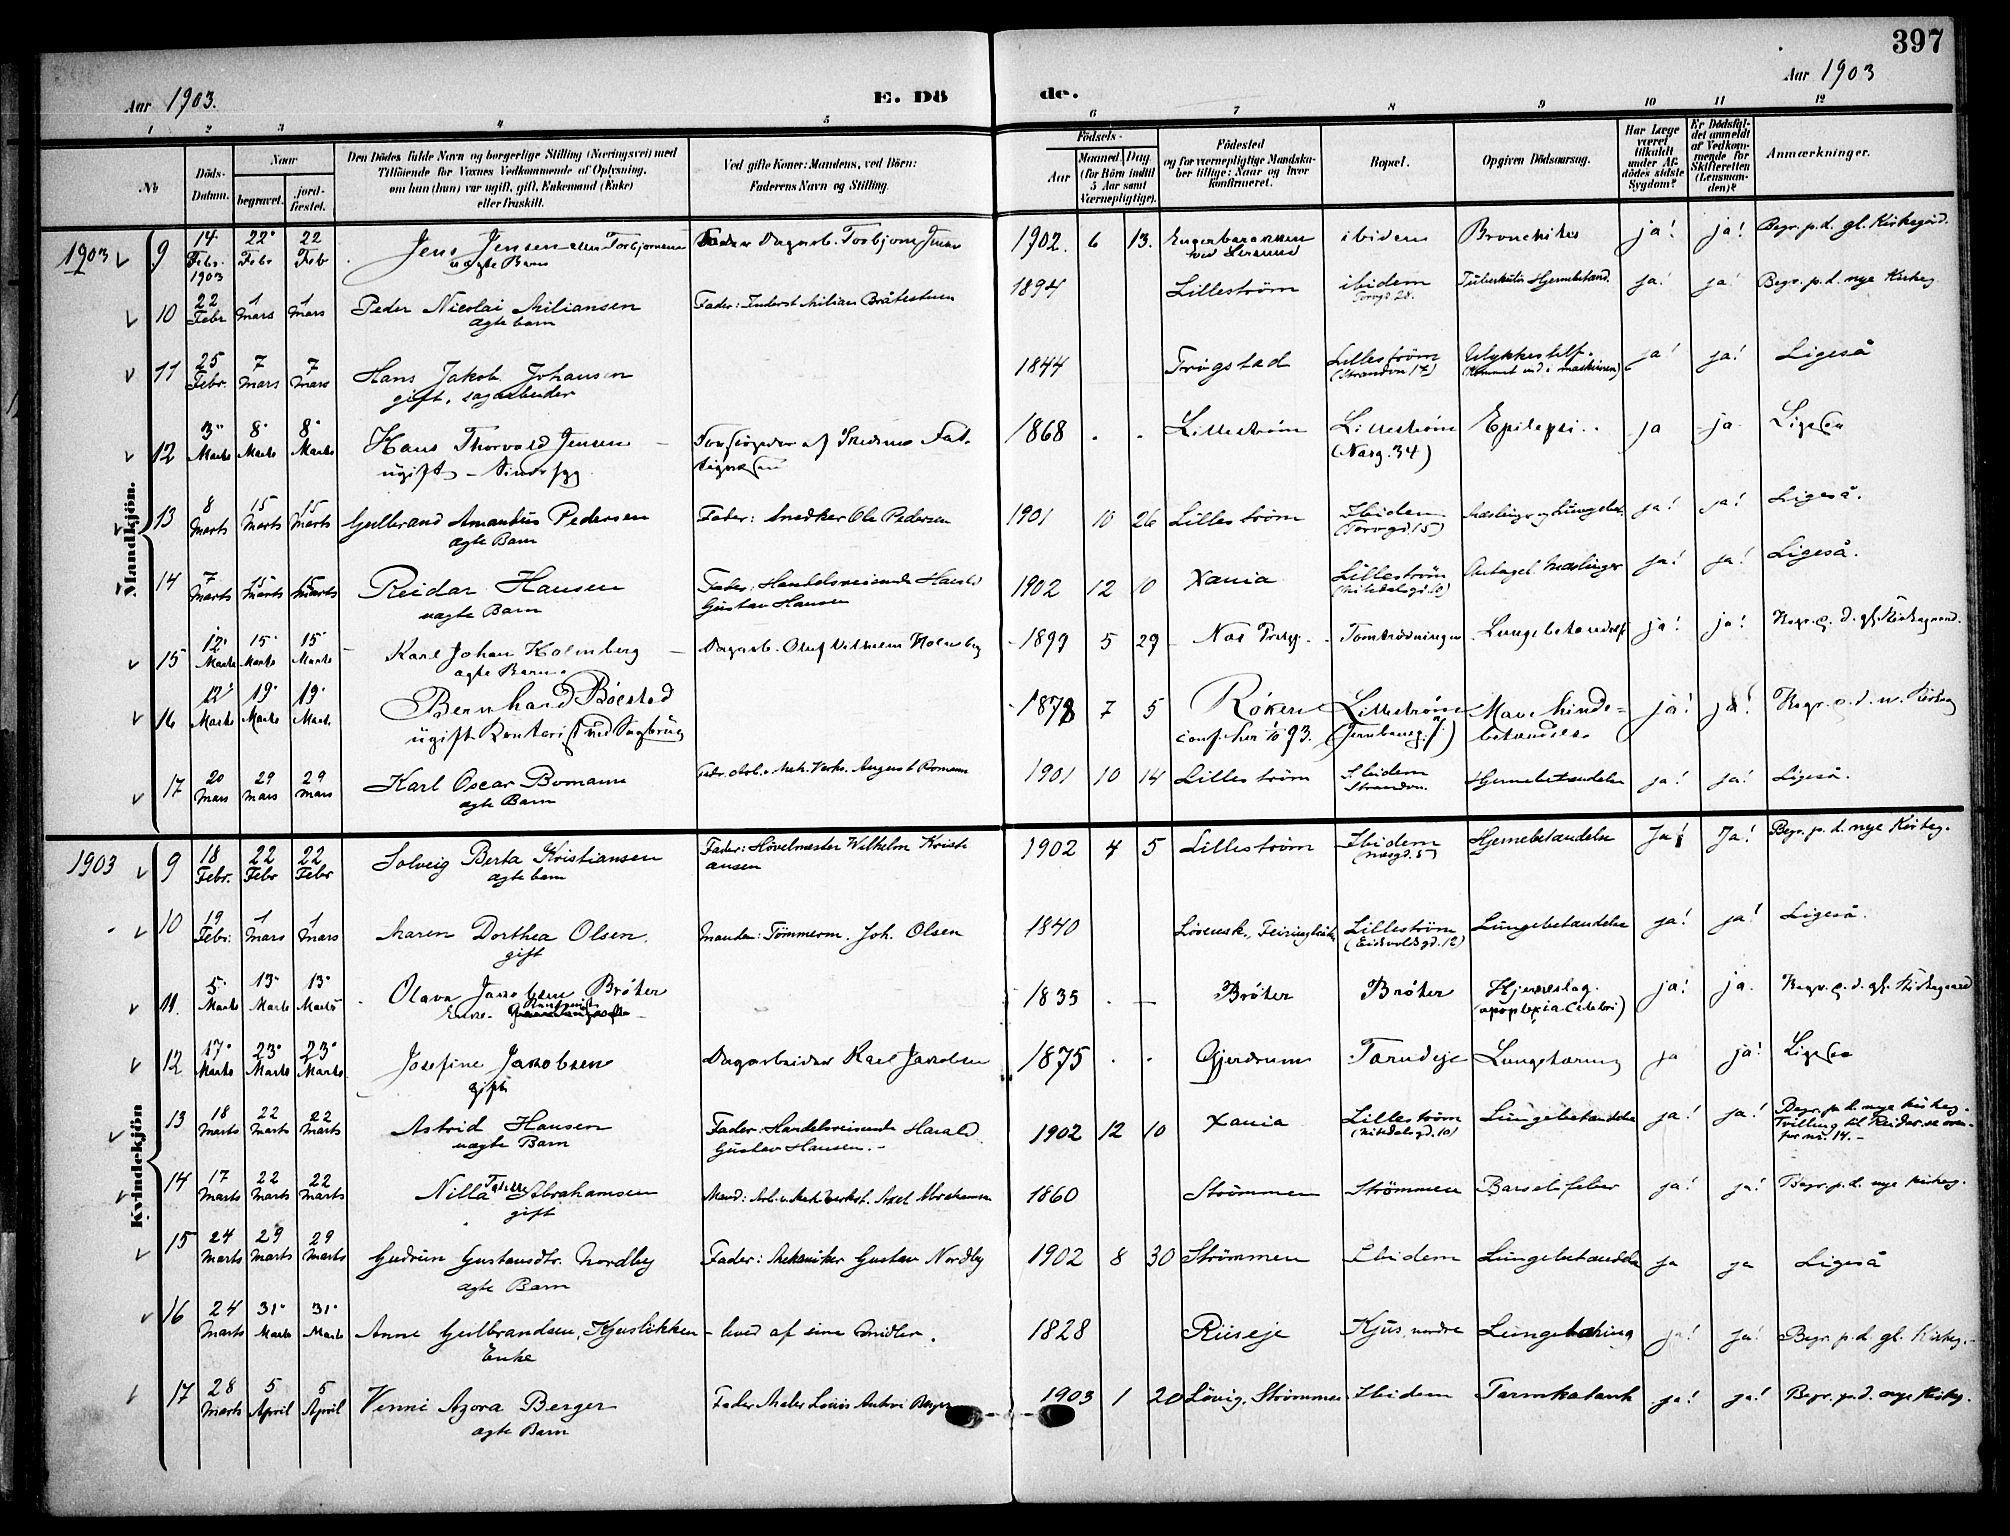 397
Aar 1903.
E. Dö
de.
Aar 1903
1 2 3 4 5 6 7 8 9 10 11 12
No
Døds-Datum.
Naar
begravet.
jordfæstet.
Den Dödes fulde Navn og borgerlige Stilling (Næringsvei) med
Tilföiende for Voxnes Vedkommende af Oplysning,
om han (hun) var ugift, gift, Enkemand (Enke)
eller fraskilt.
Ved gifte Koner: Mandens, ved Börn:
Faderens Navn og Stilling.
Födsels-
Aar
Maaned. Dag.
(for Börn indtil
5 Aar samt
Værnepligtige).
Födested
og for værnepligtige Mandska-
ber tillige: Naar og hvor
konfirmeret.
Bopæl.
Opgiven Dödsaarsag.
Har Læge
været
tilkaldt
under Af-
dödes sidste
Sygdom?
Er Dödsfal-
det anmeldt
af Vedkom-
mende for
Skifteretten
(Lensman-
den)?
Anmærkninger.
Mandkjön.
1903 9 14 Febr. 1903 22 Febr 22 Feb Jens Jensen eller Torbjørnsen Fader Dagarb. Torbjørn Jensen 1902. 6 13. ibidem Bronchitis ja! ja! Begr. p. d. gl. Kirkegård.
uægte Barn
10 22 Febr 1 Mars 1 Mars Peder Nicolai Miliansen Fader: Inderst Milian Bråtestuen 1894 Lilleström ibidem Tuberkuløs Hjernebetænd. ja! ja! Begr. p. d. nye Kirkeg.
ægte barn Torvgd. 28.
11 25 Febr. 7 Mars 7 Mars Hans Jakob Johansen 1844 Trögstad Lilleström Ulykkestilf. ja! ja! Ligeså
gift, sagarbeider (Strandvn 17) (Kommet ind i maskinen)
12 3 Marts 8 Marts 8 Marts Hans Thorvald Jensen Forsørgedes af Skedsmo Fat- 1868 . . Lilleström Lilleström Epilepsi ja ja Ligesaa
ugift - Sindssyg tigvæsen (Næsg. 34)
13 8 Marts 15 Marts 15 Marts Gulbrand Amandus Pedersen Fader: Snedker Ole Pedersen 1901 10 26 Lilleström Ibidem Mæslinger og Lungebet. ja! ja! Ligeså.
ægte Barn (Torvgd. 15)
14 7 Marts 15 Marts 15 Marts Reidar Hansen Fader: Handelsreisende Harald 1902 12 10 Xania Lilleström Antagel. Mæslinger ja! ja! Ligeså.
uægte Barn Gustav Hansen (Nitedalsgd. 10)
15 12 Marts 15 Marts 15 Marts Karl Johan Holmberg Dagarb. Oluf Vilhelm Holmberg 1899 5 29 Lungebetændelse ja! ja! Begr. p. d. gl. Kirkegaard.
ægte Barn
16 12 Marts 19 Marts 19 Marts Bernhard Böestad 1878 7 5 Röken Lilleström Mavehinde- ja! ja! Begr. p. d. n. Kirkeg
ugift Kontorist ved Sagbrug conf. her 93. (Jernbaneg. 7.) betændelse
17 20 Mars 29 Mars 29 Mars Karl Oscar Bomann Fadr. Arb. v. Mek. Verks. August Bomann 1901 10 14 Lilleström Ibidem Hjernebetændelse ja! ja! Ligeså.
ægte Barn Strandvn.
Kvindekjön
1903 9 18 Febr. 22 Febr 22 Febr Solveig Berta Kristiansen Fader: Høvelmester Wilhelm Kristi 1902 4 5 Lilleström Ibidem Hjernebetændelse Ja! Ja! Begr. p. d. nye Kirkeg.
ægte barn ansen (Næsgd. 5)
10 19 Febr. 1 Mars 1 Mars Maren Dorthea Olsen. Manden: Tömmerm. Joh. Olsen 1840 Lörensk., Lilleström Lungebetændelse ja! ja! Ligeså.
gift (Eidsvoldsgd. 12)
11. 5 Marts 13 Marts 13 Marts Olava Jacobsen Bröter 1835 . - Bröter Bröter Hjerneslag ja! ja. Begr. p. d. gl. Kirkegaard
Enke. (apoplexia Cerebri)
12 17 Marts 23 Marts 23 Marts Josefine Jacobsen Dagarbeider Karl Jacobsen 1875 . . Gjerdrum Tærudeje Lungetæring ja ja! Ligesaa
gift
13 18 Marts 22 Marts 22 Marts Astrid Hansen Fader: Handelsreisende Harald 1902 12 10 Xania Lilleström Lungebetændelse ja! ja! Begr. p. d. nye Kirkeg.
uægte Barn Gustav Hansen. - (Nitedalsgd. 10) Tvilling til Reidar se oven-
for no. 14. -
14 17 Marts 22 Marts 22 Marts Nilla Abrahamsen Mand: Arb. v. Mek. Verkst. Axel Abrahamsen 1860 Strömmen Strömmen Barselsfeber ja! ja! Begr. p. d. nye Kirkeg.
gift
15 24 Marts 29 Marts 29 Marts Gudrun Gustavsdtr. Nordby Fader: Mekaniker Gustav Nordby 1902 8 30 Strömmen Ibidem Lungebetændelse ja ja Ligeså
ægte Barn
16 24 Marts 31 Marts 31 Marts Anne Gulbrandsen, Kjuslökken - leved af sine Midler. 1828 Riiseje Kjus, nordre Lungetæring ja! ja! Begr. p. d. gl. Kirkeg. -
Enke
17 28 Marts 5 April 5 April Venni Agora Berger Fader Maler Louis Berger 1903 1 20 Lövig, Strömmen Ibidem Tarmkatarrh ja! ja! Begr. p. d. nye Kirkeg.
ægte Barn